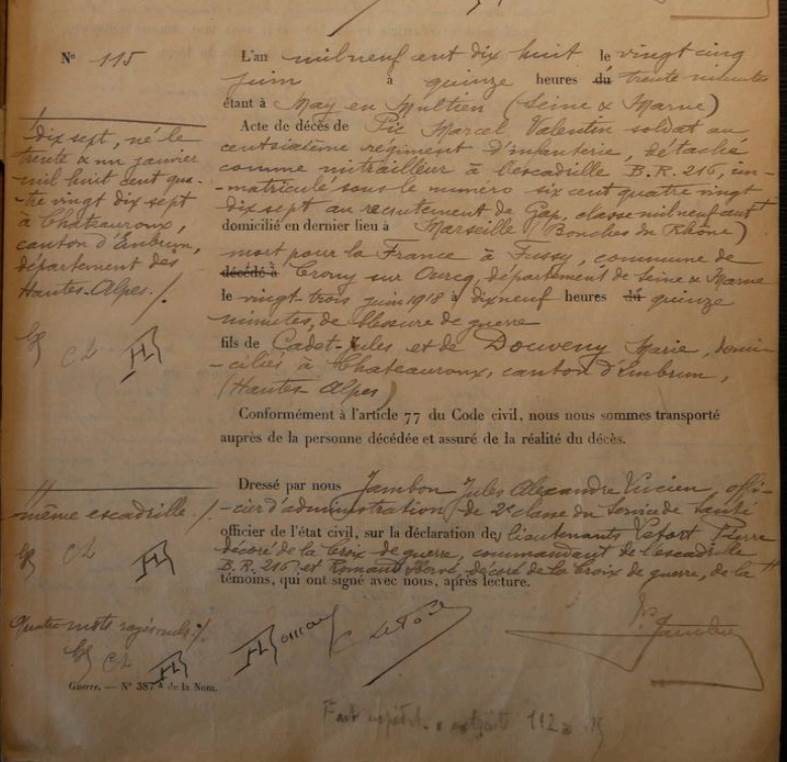 N° 115
L'an mil neuf cent dix huit le vingt cinq
juin à quinze heures du trente minutes
étant à May en Multien (Seine & Marne)
Acte de décès de Pic Marcel Valentin soldat au
centsixième régiment d'infanterie, détaché
comme mitrailleur à l'escadrille B.R. 216, im-
-matriculé sous le numéro six cent quatre vingt
dix sept au recrutement de Gap, classe mil neuf cent
domicilié en dernier lieu à Marseille (Bouches du Rhône)
mort pour la France à Fussy, commune de
décédé à Crouy sur Ourcq, département de Seine & Marne
le vingt-trois juin 1918 à dix neuf heures du quinze
minutes, de blessure de guerre
fils de Cadet-Jules et de Douveny Marie, domi-
-ciliés à Chateauroux, canton d'Embrun,
(Hautes-Alpes)
Conformément à l'article 77 du Code civil, nous nous sommes transporté
auprès de la personne décédée et assuré de la réalité du décès.
Dressé par nous Jambon Jules Alexandre Lucien, offi-
-cier d'administration de 2e classe du Service de Santé
officier de l'état civil, sur la déclaration des lieutenants Lefort Pierre
décoré de la Croix de guerre, commandant de l'escadrille
B.R. 216 et Romand Hervé décoré de la Croix de guerre, de la
témoins, qui ont signé avec nous, après lecture.
Jambon
dix sept, né le
trente & un janvier
mil huit cent qua-
-tre vingt dix sept
à Chateauroux,
canton d'Embrun,
département des
Hautes-Alpes./.
même escadrille./.
Quatre mots rayés nuls./.
Guerre. — N° 387 A de la Nom.
112